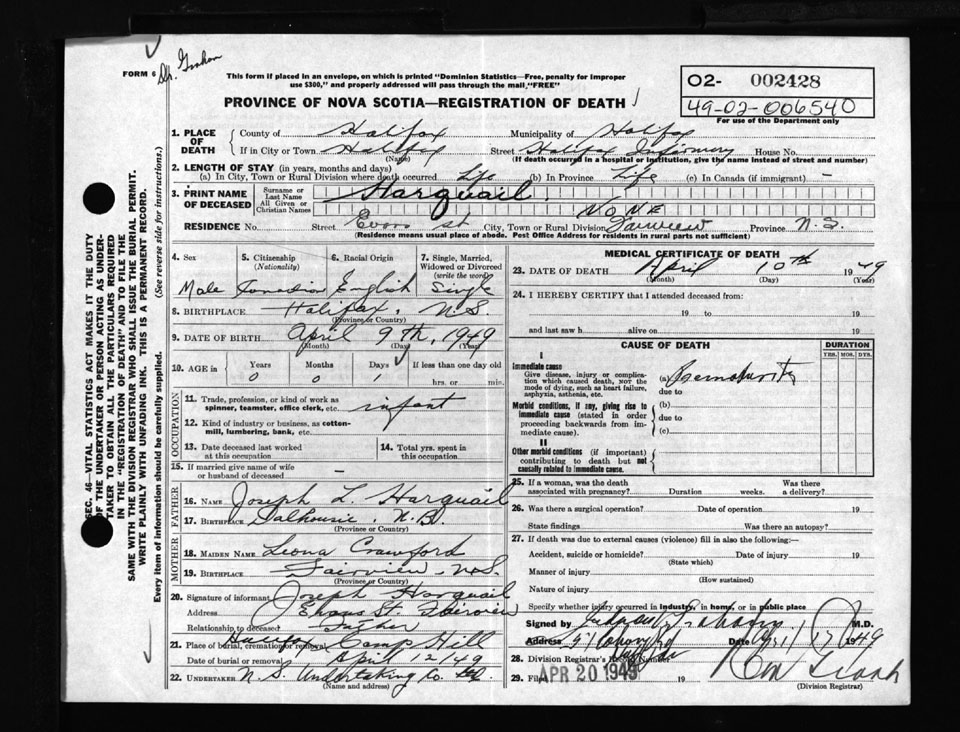 FORM 6
Dr. Graham
This form if placed in an envelope, on which is printed "Dominion Statistics—Free, penalty for improper
use $300," and properly addressed will pass through the mail, "FREE"
PROVINCE OF NOVA SCOTIA—REGISTRATION OF DEATH
O2- 002428
49-02-006540
For use of the Department only
1. PLACE OF DEATH County of Halifax Municipality of Halifax
If in City or Town Halifax Street Halifax Infirmary House No.
(Name) (If death occurred in a hospital or institution, give the name instead of street and number)
2. LENGTH OF STAY (in years, months and days)
(a) In City, Town or Rural Division where death occurred Life (b) In Province Life (c) In Canada (if immigrant) —
3. PRINT NAME OF DECEASED Surname or Last Name Harquail
All Given or Christian Names NONE
RESIDENCE No. Street Evans St City, Town or Rural Division Fairview Province N.S.
(Residence means usual place of abode. Post Office Address for residents in rural parts not sufficient)
4. Sex 5. Citizenship (Nationality) 6. Racial Origin 7. Single, Married, Widowed or Divorced (write the word)
Male Canadian English Single
8. BIRTHPLACE Halifax, N.S.
(Province or Country)
9. DATE OF BIRTH April 9th, 1949
(Month) (Day) (Year)
10. AGE in Years Months Days If less than one day
0 0 1 hrs. or min.
OCCUPATION
11. Trade, profession, or kind of work as spinner, teamster, office clerk, etc. infant
12. Kind of industry or business, as cotton-mill, lumbering, bank, etc.
13. Date deceased last worked at this occupation 14. Total yrs. spent in this occupation
15. If married give name of wife or husband of deceased —
FATHER
16. NAME Joseph L. Harquail
17. BIRTHPLACE Dalhousie N.B.
(Province or Country)
MOTHER
18. MAIDEN NAME Leona Crawford
19. BIRTHPLACE Fairview, N.S.
(Province or Country)
20. Signature of informant Joseph Harquail
Address Evans St. Fairview
Relationship to deceased Father
21. Place of burial, cremation or removal Halifax Camp Hill
Date of burial or removal April 12/49
22. UNDERTAKER N.S. Undertaking Co. Ltd.
(Name and address)
MEDICAL CERTIFICATE OF DEATH
23. DATE OF DEATH April 10th 1949
(Month) (Day) (Year)
24. I HEREBY CERTIFY that I attended deceased from:
19 to 19
and last saw h alive on 19
CAUSE OF DEATH DURATION
YRS. MOS. DYS.
I
Immediate cause
Give disease, injury or complication which caused death, NOT the mode of dying, such as heart failure, asphyxia, asthenia, etc. (a) Prematurity
due to
Morbid conditions, if any, giving rise to immediate cause (stated in order proceeding backwards from immediate cause). (b)
due to
(c)
II
Other morbid conditions (if important) contributing to death but not causally related to immediate cause.
25. If a woman, was the death associated with pregnancy? Duration weeks. Was there a delivery?
26. Was there a surgical operation? Date of operation 19
State findings Was there an autopsy?
27. If death was due to external causes (violence) fill in also the following:—
Accident, suicide or homicide? Date of injury 19
(State which)
Manner of injury
(How sustained)
Nature of injury
Specify whether injury occurred in Industry, in home, or in public place
Signed by M.D.
Address Date 1949
28. Division Registrar's Record Number
29. Filed APR 20 1949 19
(Division Registrar)
SEC. 46—VITAL STATISTICS ACT MAKES IT THE DUTY
OF THE UNDERTAKER OR PERSON ACTING AS UNDER-
TAKER TO OBTAIN ALL THE PARTICULARS REQUIRED
IN THE "REGISTRATION OF DEATH" AND TO FILE THE
SAME WITH THE DIVISION REGISTRAR WHO SHALL ISSUE THE BURIAL PERMIT.
WRITE PLAINLY WITH UNFADING INK. THIS IS A PERMANENT RECORD.
Every item of information should be carefully supplied. (See reverse side for instructions.)